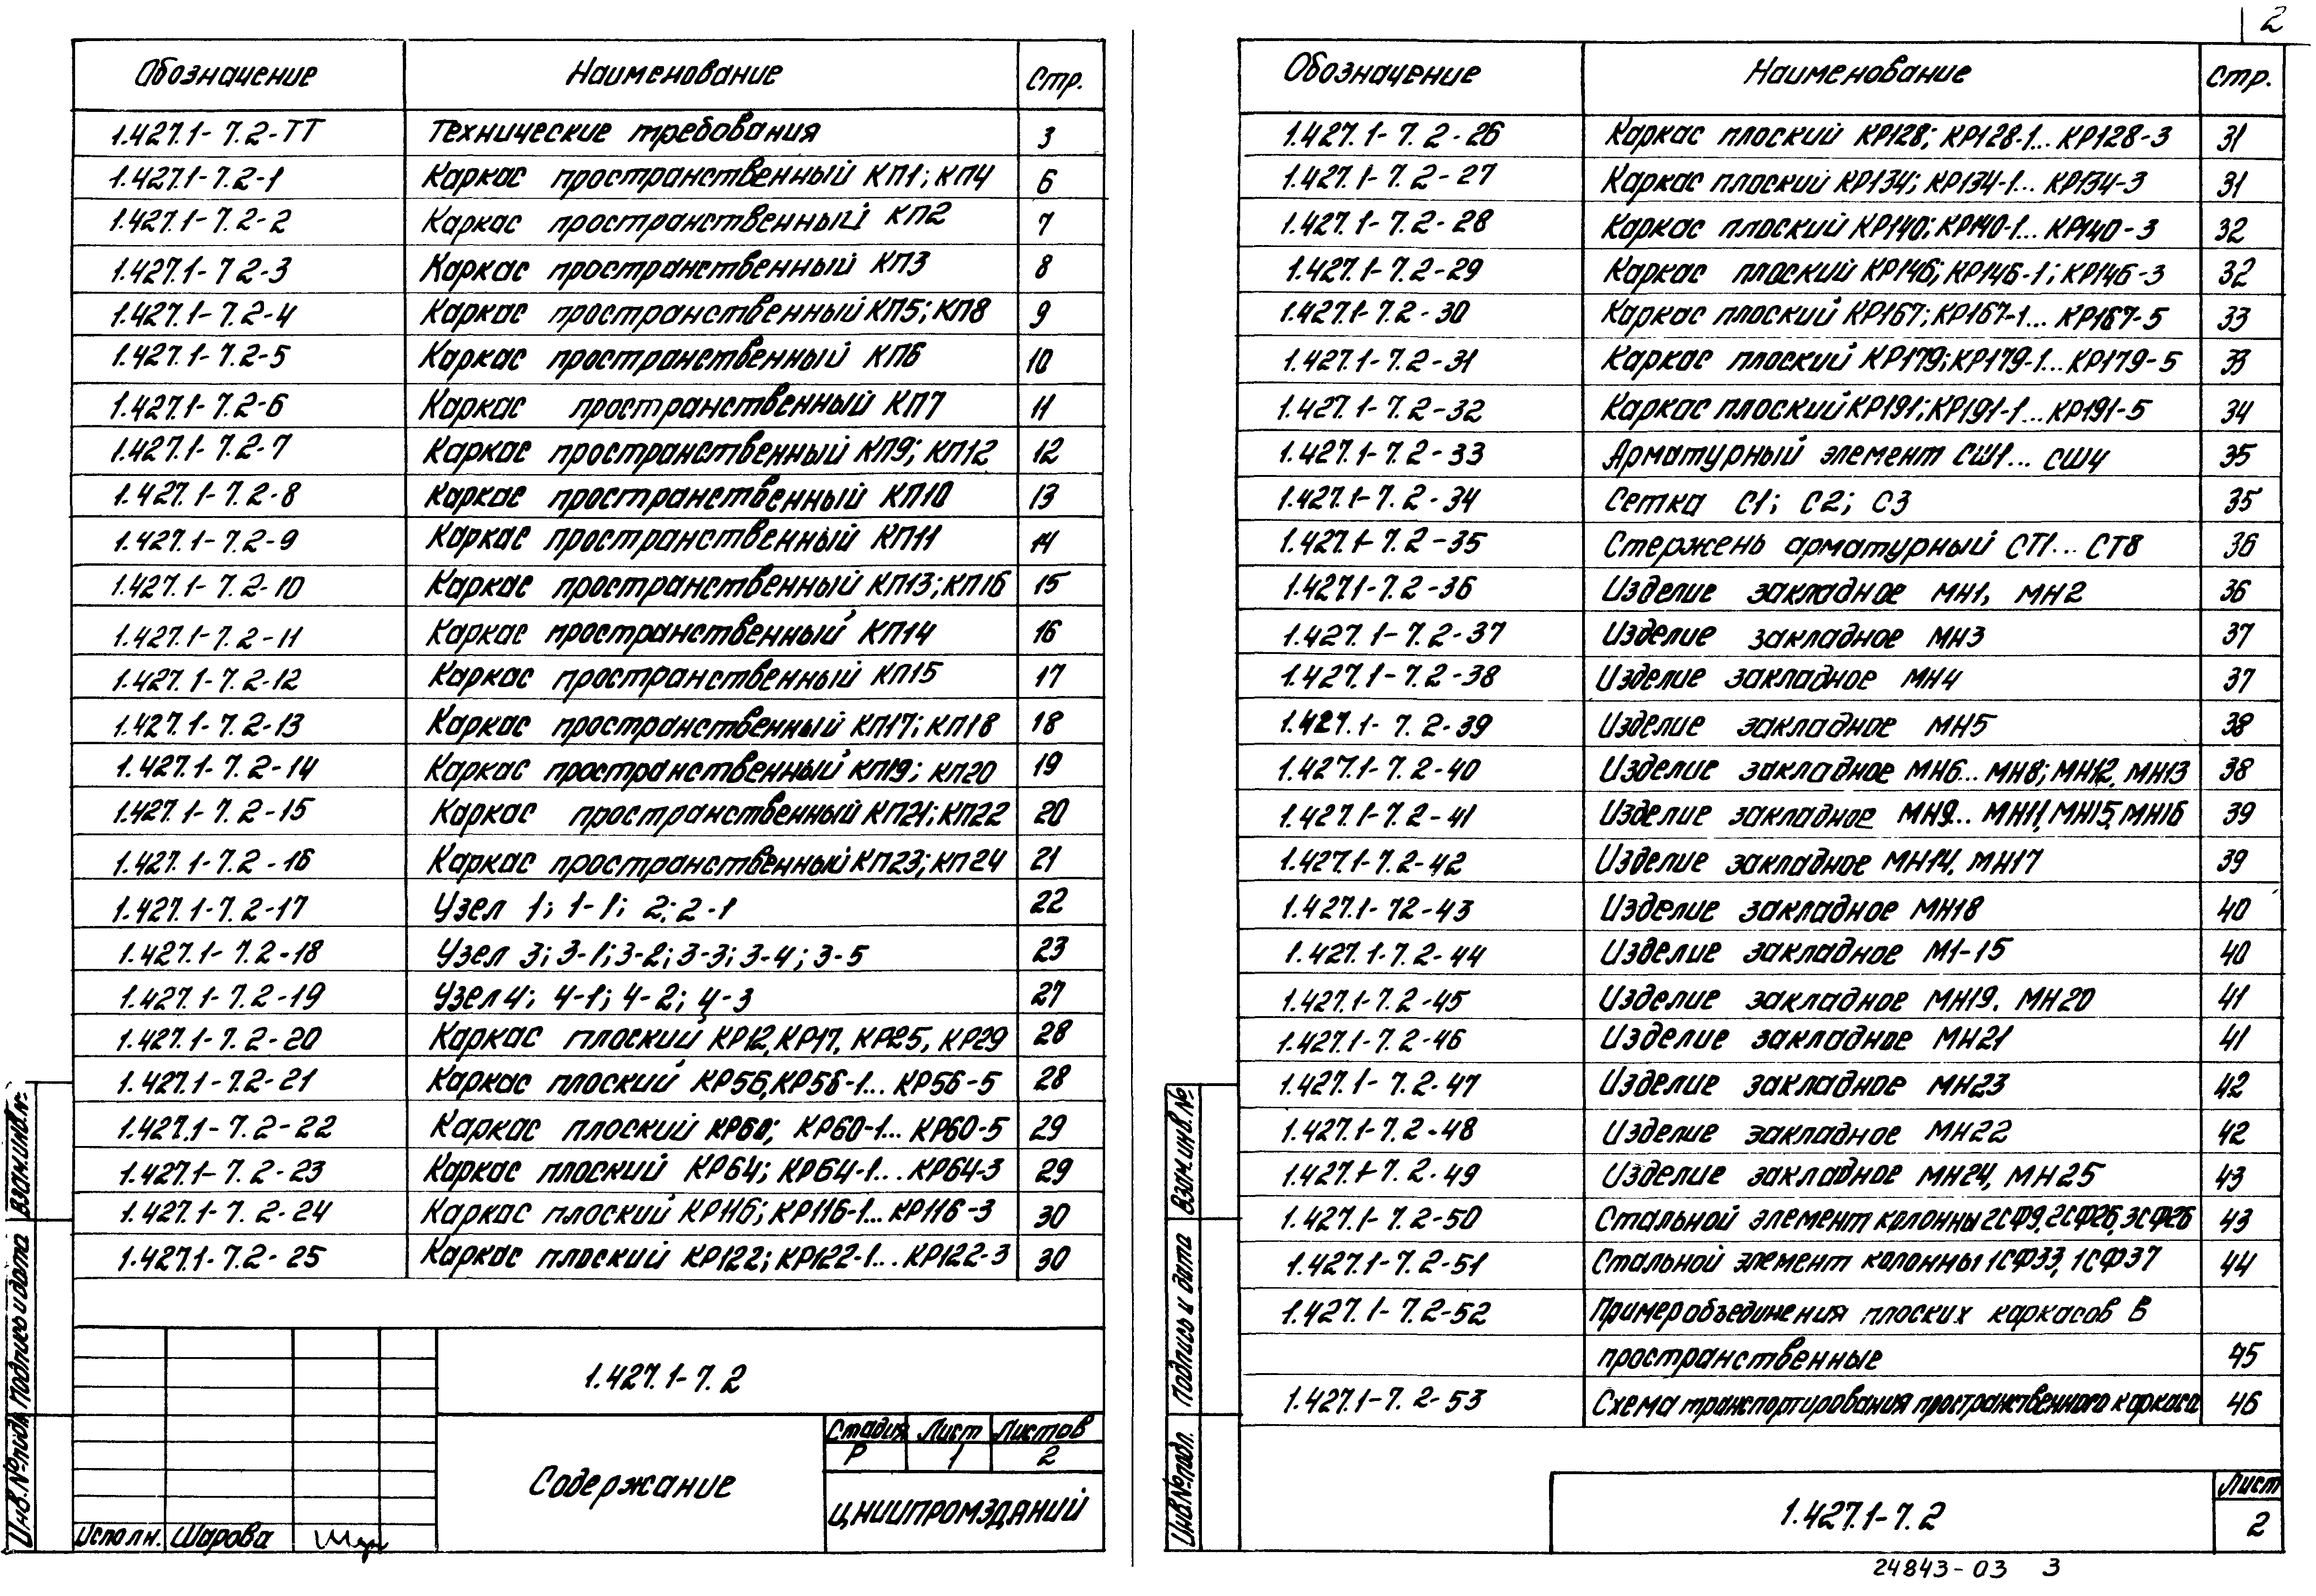 2
Обозначение Наименование Стр.
1.427.1-7.2-ТТ Технические требования 3
1.427.1-7.2-1 Каркас пространственный КП1; КП4 6
1.427.1-7.2-2 Каркас пространственный КП2 7
1.427.1-7 2-3 Каркас пространственный КП3 8
1.427.1-7.2-4 Каркас пространственный КП5; КП8 9
1.427.1-7.2-5 Каркас пространственный КП6 10
1.427.1-7.2-6 Каркас пространственный КП7 11
1.427.1-7.2-7 Каркас пространственный КП9; КП12 12
1.427.1-7.2-8 Каркас пространственный КП10 13
1.427.1-7.2-9 Каркас пространственный КП11 14
1.427.1-7.2-10 Каркас пространственный КП13; КП16 15
1.427.1-7.2-11 Каркас пространственный КП14 16
1.427.1-7.2-12 Каркас пространственный КП15 17
1.427.1-7.2-13 Каркас пространственный КП17; КП18 18
1.427.1-7.2-14 Каркас пространственный КП19; КП20 19
1.427.1-7.2-15 Каркас пространственный КП21; КП22 20
1.427.1-7.2-16 Каркас пространственный КП23; КП24 21
1.427.1-7.2-17 Узел 1; 1-1; 2; 2-1 22
1.427.1-7.2-18 Узел 3; 3-1; 3-2; 3-3; 3-4; 3-5 23
1.427.1-7.2-19 Узел 4; 4-1; 4-2; 4-3 27
1.427.1-7.2-20 Каркас плоский КР12, КР17, КР25, КР29 28
1.427.1-7.2-21 Каркас плоский КР56, КР56-1... КР56-5 28
1.427.1-7.2-22 Каркас плоский КР60; КР60-1... КР60-5 29
1.427.1-7.2-23 Каркас плоский КР64; КР64-1... КР64-3 29
1.427.1-7.2-24 Каркас плоский КР116; КР116-1... КР116-3 30
1.427.1-7.2-25 Каркас плоский КР122; КР122-1... КР122-3 30
1.427.1-7.2
Содержание
Стадия Лист Листов
Р 1 2
ЦНИИПРОМЗДАНИЙ
Исполн. Шарова
Инв.№подл. Подпись и дата Взам.инв.№
Обозначение Наименование Стр.
1.427.1-7.2-26 Каркас плоский КР128; КР128-1... КР128-3 31
1.427.1-7.2-27 Каркас плоский КР134; КР134-1... КР134-3 31
1.427.1-7.2-28 Каркас плоский КР140; КР140-1... КР140-3 32
1.427.1-7.2-29 Каркас плоский КР146; КР146-1; КР146-3 32
1.427.1-7.2-30 Каркас плоский КР167; КР167-1... КР167-5 33
1.427.1-7.2-31 Каркас плоский КР179; КР179-1... КР179-5 33
1.427.1-7.2-32 Каркас плоский КР191; КР191-1... КР191-5 34
1.427.1-7.2-33 Арматурный элемент СШ1... СШ4 35
1.427.1-7.2-34 Сетка С1; С2; С3 35
1.427.1-7.2-35 Стержень арматурный СТ1... СТ8 36
1.427.1-7.2-36 Изделие закладное МН1, МН2 36
1.427.1-7.2-37 Изделие закладное МН3 37
1.427.1-7.2-38 Изделие закладное МН4 37
1.427.1-7.2-39 Изделие закладное МН5 38
1.427.1-7.2-40 Изделие закладное МН6... МН8; МН12, МН13 38
1.427.1-7.2-41 Изделие закладное МН9... МН11, МН15, МН16 39
1.427.1-7.2-42 Изделие закладное МН14, МН17 39
1.427.1-72-43 Изделие закладное МН18 40
1.427.1-7.2-44 Изделие закладное М1-15 40
1.427.1-7.2-45 Изделие закладное МН19, МН20 41
1.427.1-7.2-46 Изделие закладное МН21 41
1.427.1-7.2-47 Изделие закладное МН23 42
1.427.1-7.2-48 Изделие закладное МН22 42
1.427.1-7.2-49 Изделие закладное МН24, МН25 43
1.427.1-7.2-50 Стальной элемент колонны 2СФ9, 2СФ26, 3СФ26 43
1.427.1-7.2-51 Стальной элемент колонны 1СФ33, 1СФ37 44
1.427.1-7.2-52 Пример объединения плоских каркасов в
пространственные 45
1.427.1-7.2-53 Схема транспортирования пространственного каркаса 46
1.427.1-7.2
Лист
2
Инв.№подл. Подпись и дата Взам.инв.№
24843-03 3